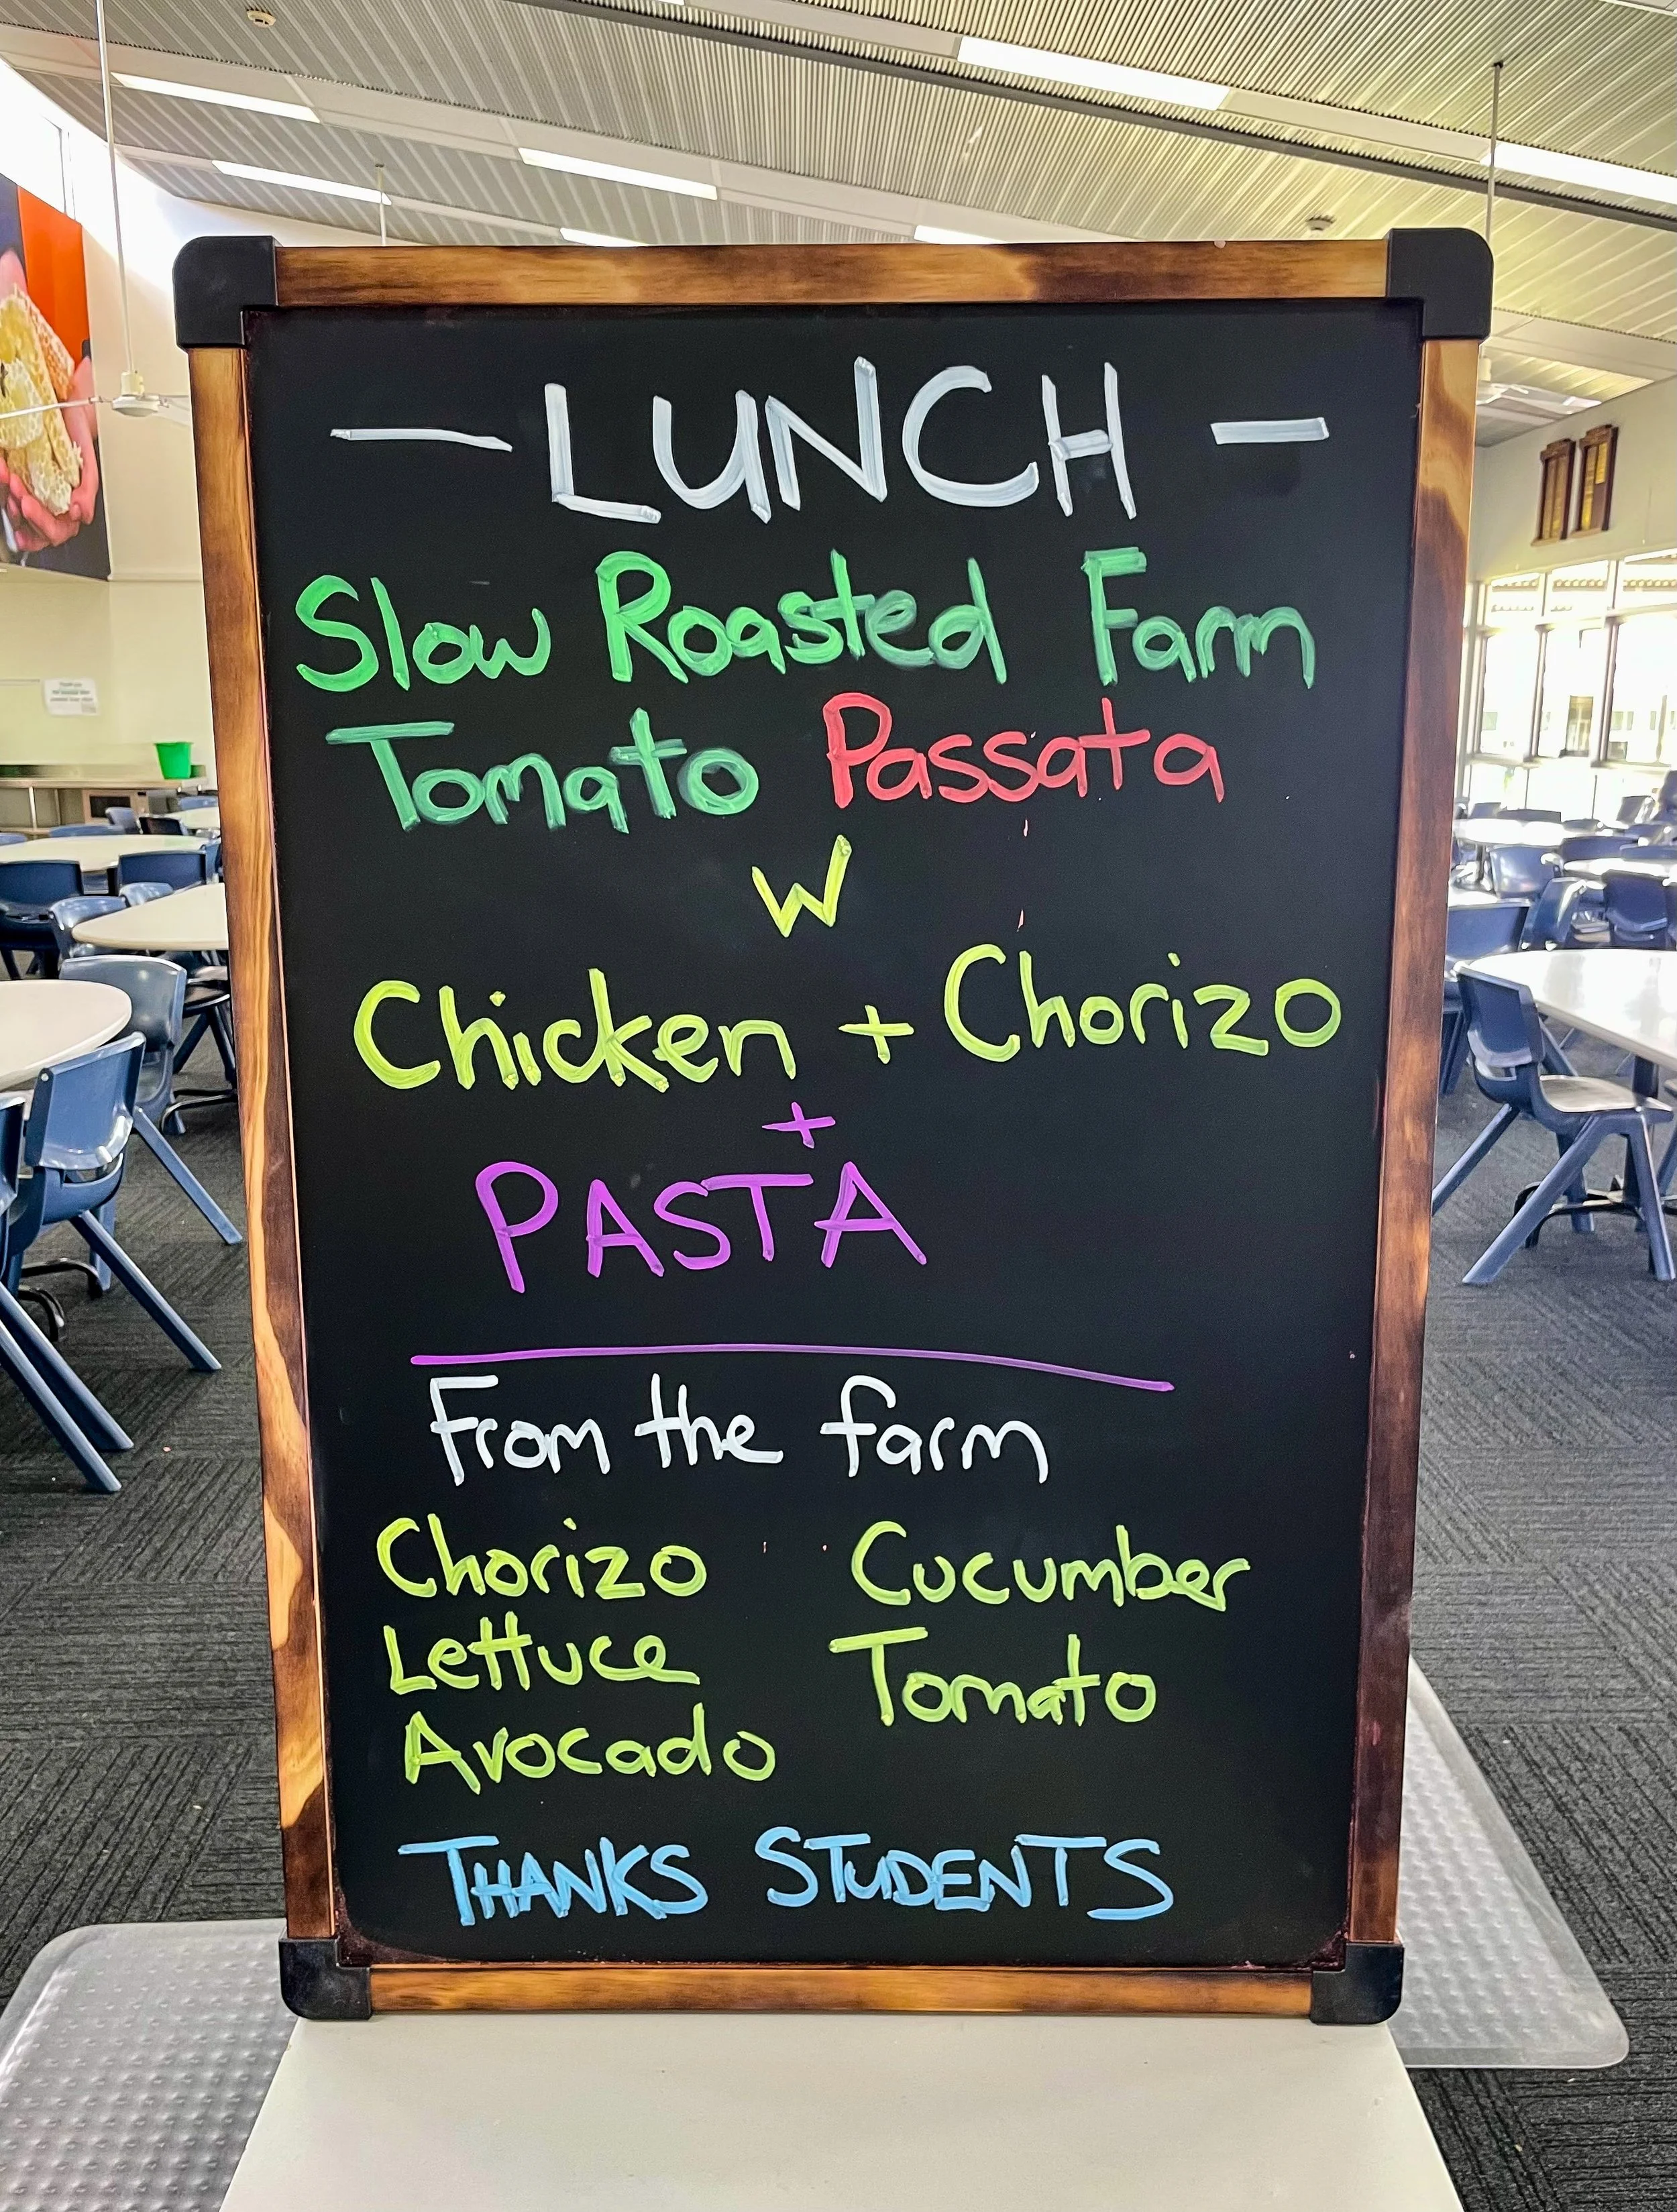 — LUNCH —
Slow Roasted Farm
Tomato Passata
W
Chicken + Chorizo
+
PASTA
From the farm
Chorizo Cucumber
Lettuce Tomato
Avocado
THANKS STUDENTS